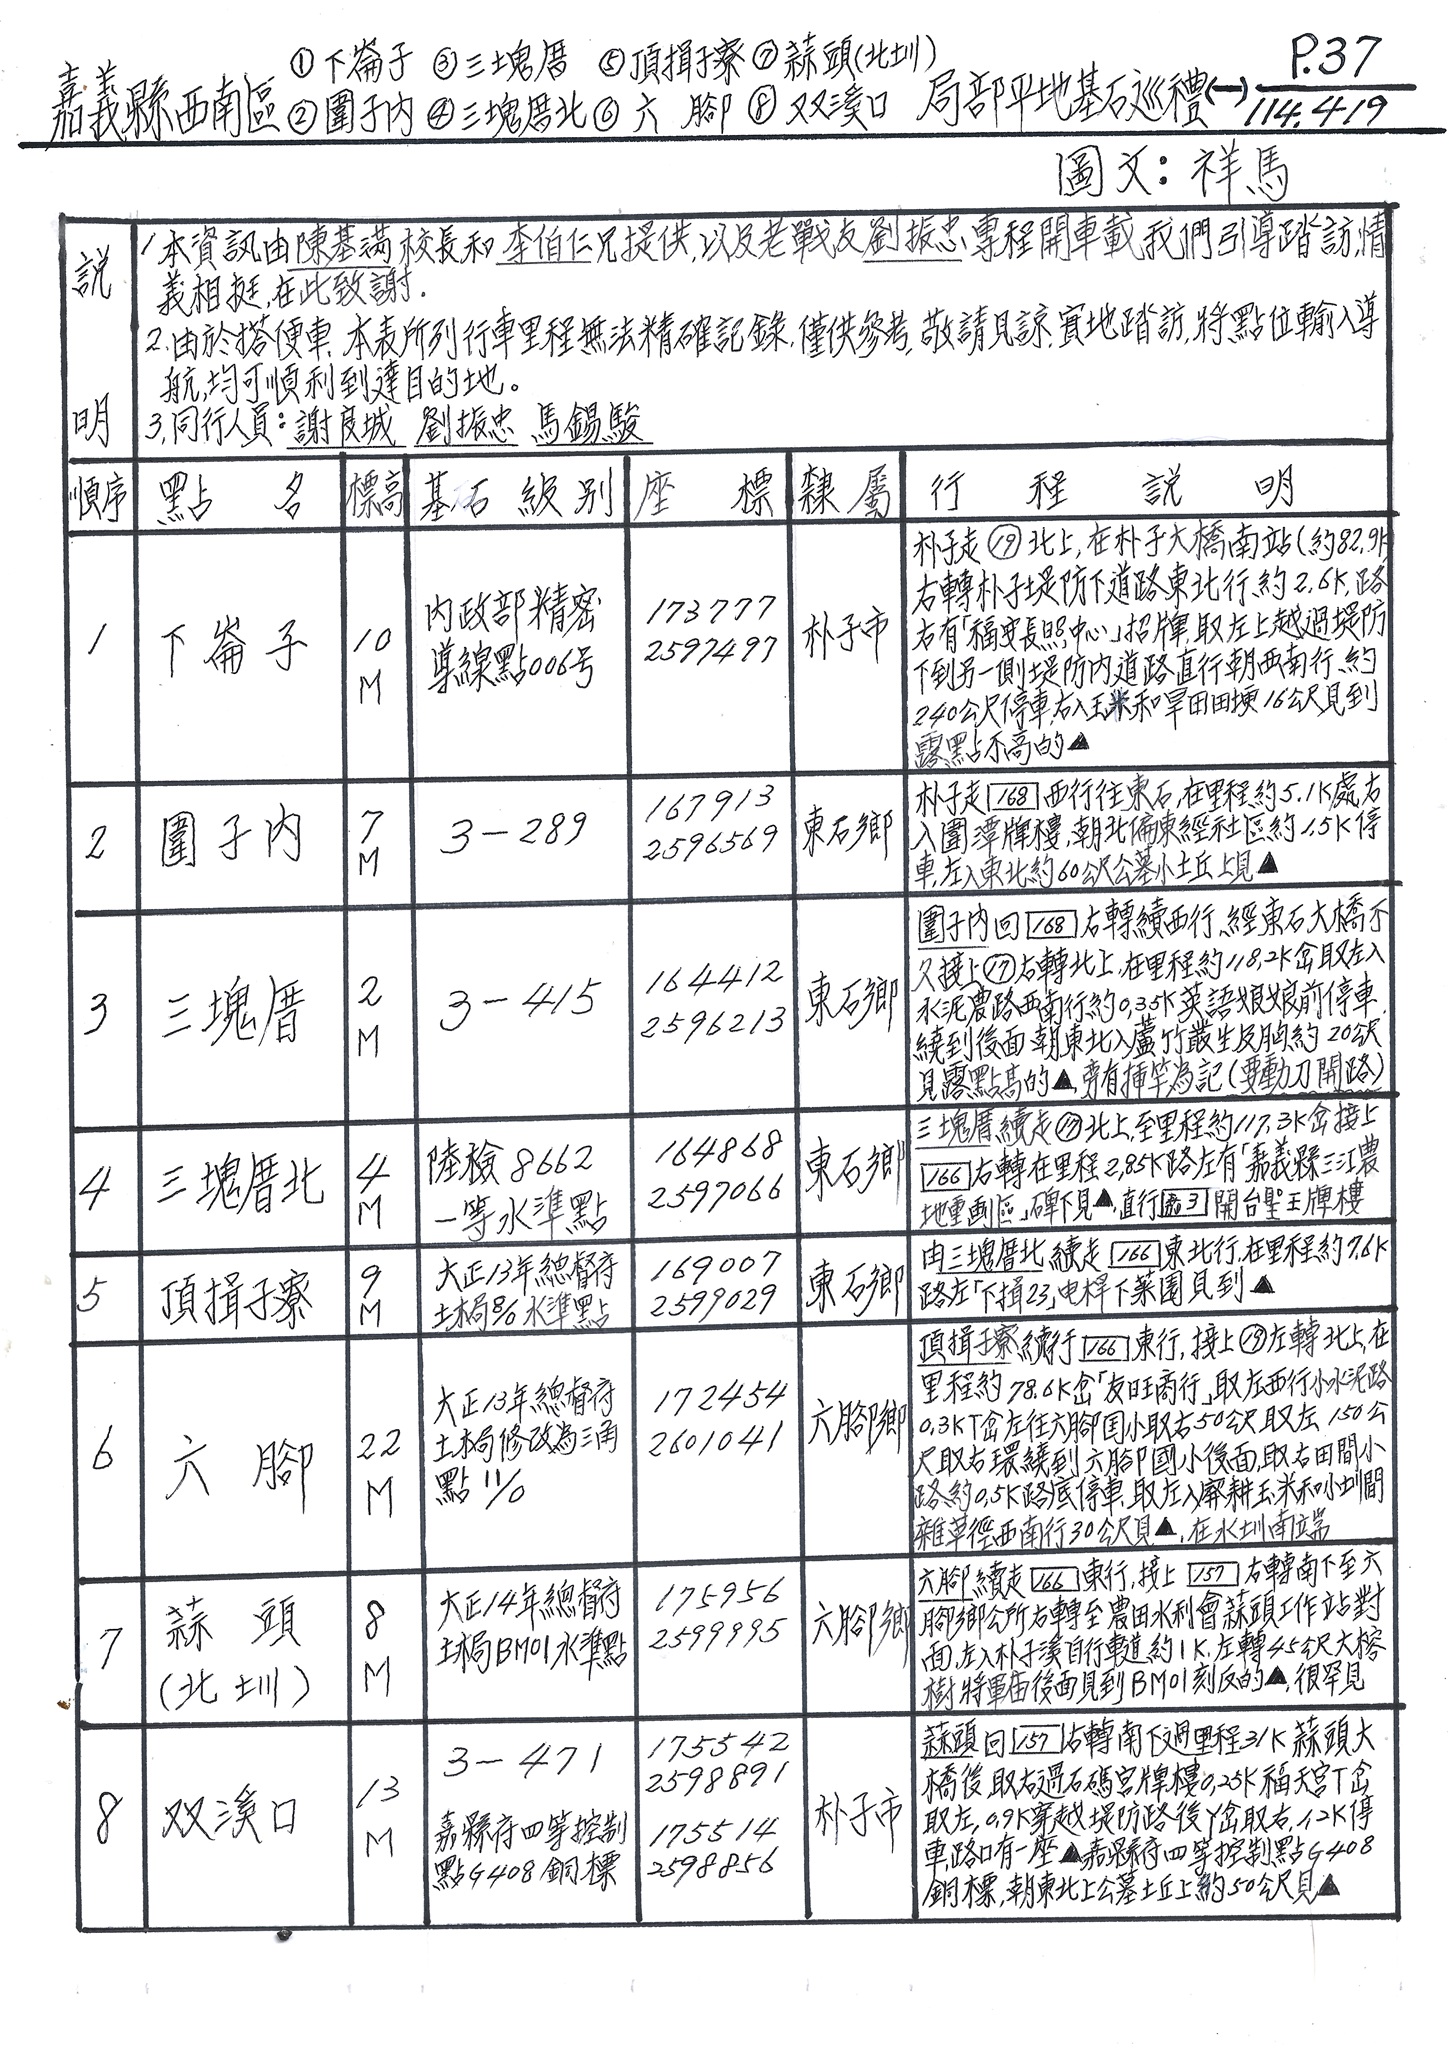 嘉義縣西南區 ①下崙子 ③三塊厝 ⑤頂揖子寮 ⑦蒜頭(北圳) 局部平地基石巡禮(一) P.37
②圍子內 ④三塊厝北 ⑥六腳 ⑧双溪口 114.4.19
圖文:祥馬
說明
1.本資訊由陳基滿校長和李伯仁兄提供,以及老戰友劉振忠專程開車載我們引導踏訪,情
義相挺,在此致謝.
2.由於搭便車,本表所列行車里程無法精確記錄,僅供參考,敬請見諒,實地踏訪,將點位輸入導
航,均可順利到達目的地。
3.同行人員:謝良城 劉振忠 馬錫駿
順序 點名 標高 基石級別 座標 隸屬 行程說明
1 下崙子 10M
內政部精密
導線點006号
173777
2597497
朴子市
朴子走⑲北上,在朴子大橋南站(約82.9K)
右轉朴子堤防下道路東北行,約2.6K,路
右有「福安長照中心」招牌,取左上越過堤防
下到另一側堤防內道路直行朝西南行,約
240公尺停車,右入玉米和旱田田埂16公尺見到
露點不高的▲
2 圍子內 7M 3-289
167913
2596569
東石鄉
朴子走168西行往東石,在里程約5.1K處右
入圍潭牌樓,朝北偏東經社區約1.5K停
車,左入東北約60公尺公墓小土丘上見▲
3 三塊厝 2M 3-415
164412
2596213
東石鄉
圍子內回168右轉續西行,經東石大橋不
久接上⑰右轉北上,在里程約118.2K岔取左入
水泥農路西南行約0.35K英語娘娘前停車,
繞到後面朝東北入蘆竹叢生及胸約20公尺
見露點高的▲,旁有插竿為記(要動刀開路)
4 三塊厝北 4M
陸檢8662
一等水準點
164868
2597066
東石鄉
三塊厝續走⑰北上,至里程約117.3K岔接上
166右轉在里程2.85K路左有「嘉義縣三江農
地重劃區」碑下見▲,直行嘉3開台聖王牌樓
5 頂揖子寮 9M
大正13年總督府
土木局8/0水準點
169007
2599029
東石鄉
由三塊厝北續走166東北行,在里程約7.6K
路左「下揖23」电桿下菜園見到▲
6 六腳 22M
大正13年總督府
土木局修改為三角
點11/0
172454
2601041
六腳鄉
頂揖子寮續行166東行,接上⑲左轉北上,在
里程約78.6K岔「友旺商行」取左西行小水泥路
0.3KT岔左往六腳国小取右50公尺取左150公
尺取右環繞到六腳國小後面,取右田間小
路約0.5K路底停車,取左入廢耕玉米和小圳間
雜草徑西南行30公尺見▲,在水圳南端
7 蒜頭 8M
(北圳)
大正14年總督府
土木局BM01水準點
175956
2599995
六腳鄉
六腳續走166東行,接上157右轉南下至六
腳鄉公所右轉至農田水利會蒜頭工作站對
面,左入朴子溪自行車道約1K,左轉45公尺大榕
樹將軍庙後面見到BM01刻反的▲,很罕見
8 双溪口 13M
3-471
嘉縣府四等控制
點G408銅標
175542
2598891
175514
2598856
朴子市
蒜頭回157右轉南下過里程31K蒜頭大
橋後,取右過石碼宮牌樓0.25K福天宮T岔
取左,0.9K穿越堤防路後Y岔取右,1.2K停
車,路口有一座▲嘉縣府四等控制點G408
銅標,朝東北上公墓土丘上約50公尺見▲